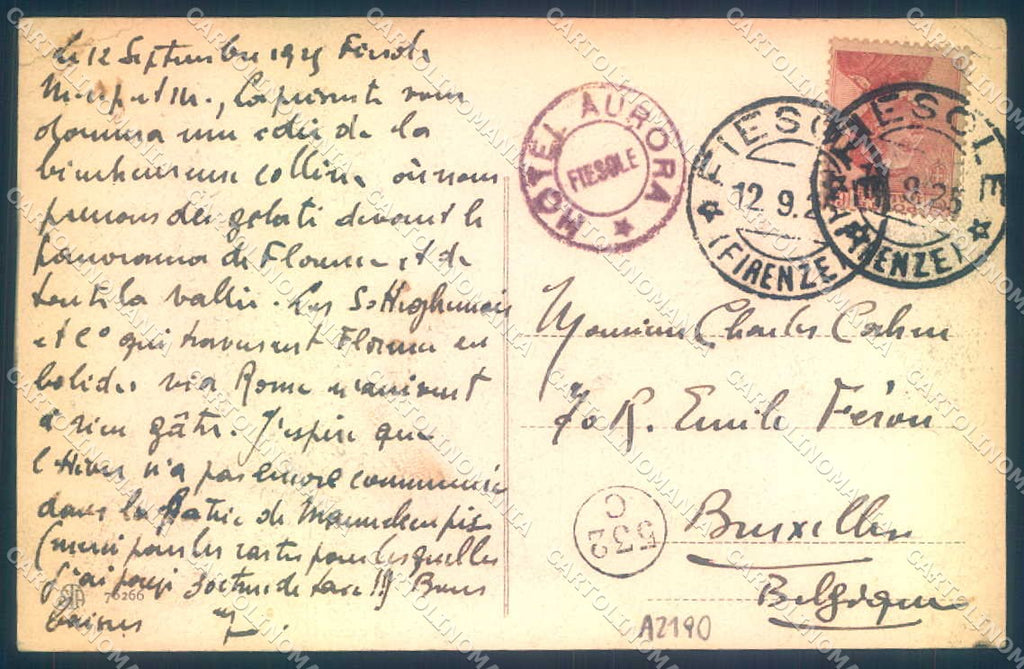 le 12 Septembre 1925 Fiesole
La présente vous
donnera une idée de la
bienheureuse colline où nous
prenons des gelati devant le
panorama de Florence et de
toute la vallée. Les
et Co qui traversent Florence en
bolides via Rome n'arrivent
à rien gâter. J'espère que
l'Hiver n'a pas encore commencé
dans la Patrie de Manneken pis
(merci pour les cartes pour lesquelles
j'ai payé de taxe !!) Bons
baisers
76266
HOTEL AURORA
FIESOLE
FIESOLE
12.9.2
(FIRENZE)
FIESOLE
9.25
(FIRENZE)
Monsieur Charles
70 R. Emile Féron
Bruxelles
Belgique
532
C
A2190
CARTOLINOMANIA